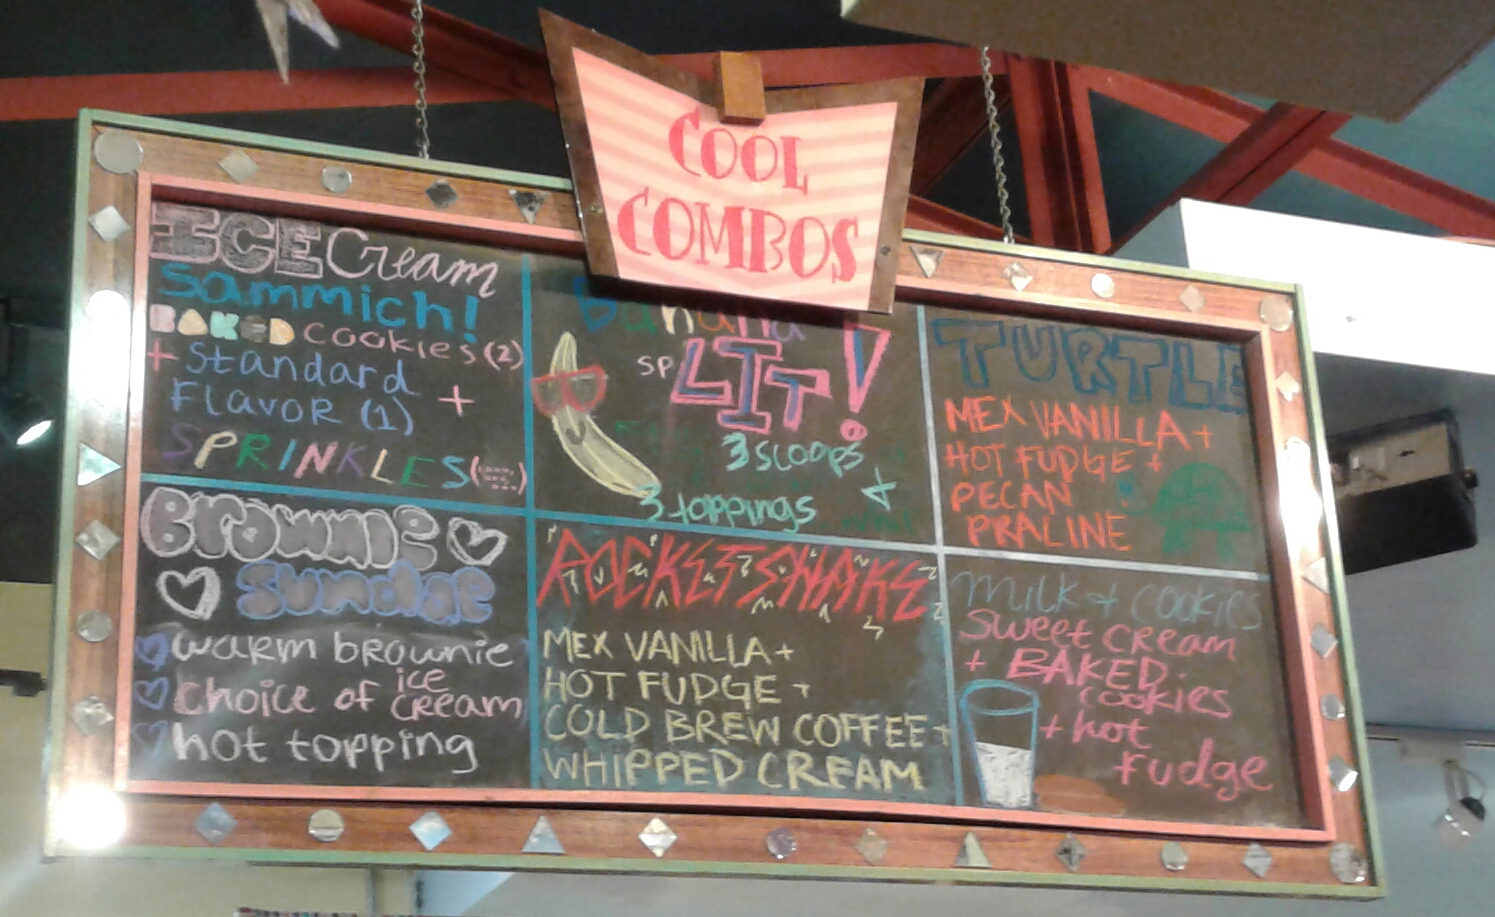 COOL
COMBOS
ICE Cream
Sammich!
BAKED cookies (2)
+ Standard
Flavor (1) +
SPRINKLES
Banana
SPLIT!
3 scoops
+
3 toppings
TURTLE
MEX VANILLA +
HOT FUDGE +
PECAN
PRALINE
Brownie
Sundae
warm brownie
choice of ice
cream
hot topping
ROCKET SHAKE
MEX VANILLA +
HOT FUDGE +
COLD BREW COFFEE +
WHIPPED CREAM
milk + cookies
Sweet cream
+ BAKED
cookies
+ hot
fudge